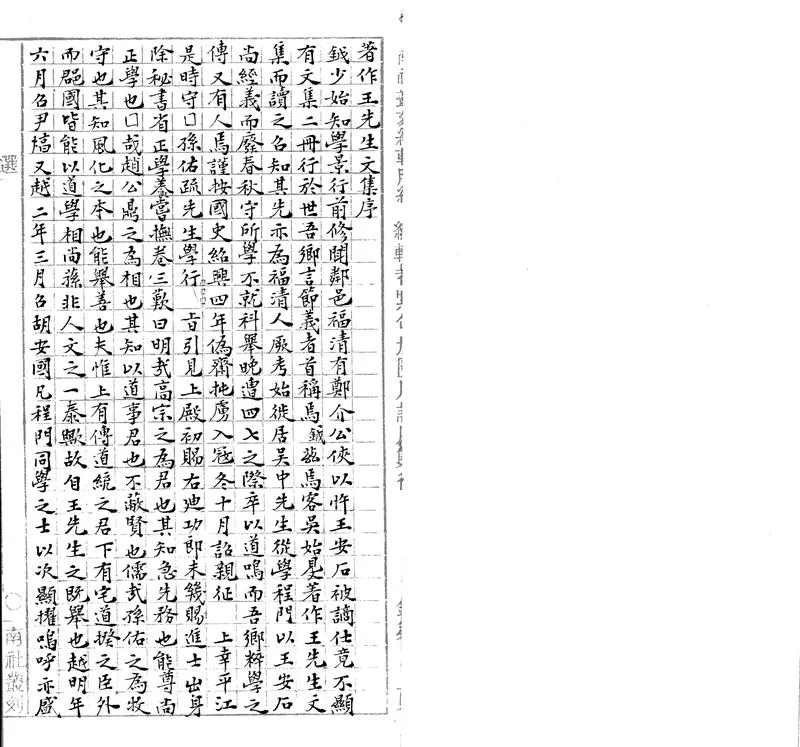 著作王先生文集序
鉞少始知學景行前修聞鄰邑福清有鄭介公俠以忤王安石被謫仕竟不顯
有文集二冊行於世吾鄉言節義者首稱焉鉞茲焉客吳始見著作王先生文
集而讀之召知其先亦為福清人厥考始徙居吳中先生從學程門以王安石
尚經義而廢春秋守所學不就科舉晚遭四七之際卒以道鳴而吾鄉粹學之
傳又有人焉謹按國史紹興四年偽齊扥虜入寇冬十月詔親征 上幸平江
是時守曰孫佑疏先生學行 上召引見上殿初賜右廸功郎未幾賜進士出身
除秘書省正學養嘗撫卷三歎曰明哉高宗之為君也其知急先務也能尊尚
正學也曰哉趙公鼎之為相也其知以道事君也不蔽賢也儒哉孫佑之為牧
守也其知風化之本也能舉善也夫惟上有傳道統之君下有宅道揆之臣外
而郡國皆能以道學相尚蓀非人文之一泰歟故自王先生之既舉也越明年
六月召尹焞又越二年三月召胡安國凡程門同學之士以次顯擢嗚呼亦盛
選
南社叢刻